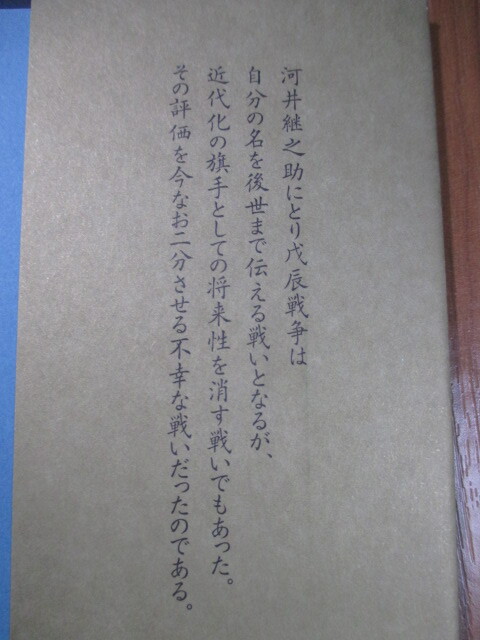 河井継之助にとり戊辰戦争は
自分の名を後世まで伝える戦いとなるが、
近代化の旗手としての将来性を消す戦いでもあった。
その評価を今なお二分させる不幸な戦いだったのである。